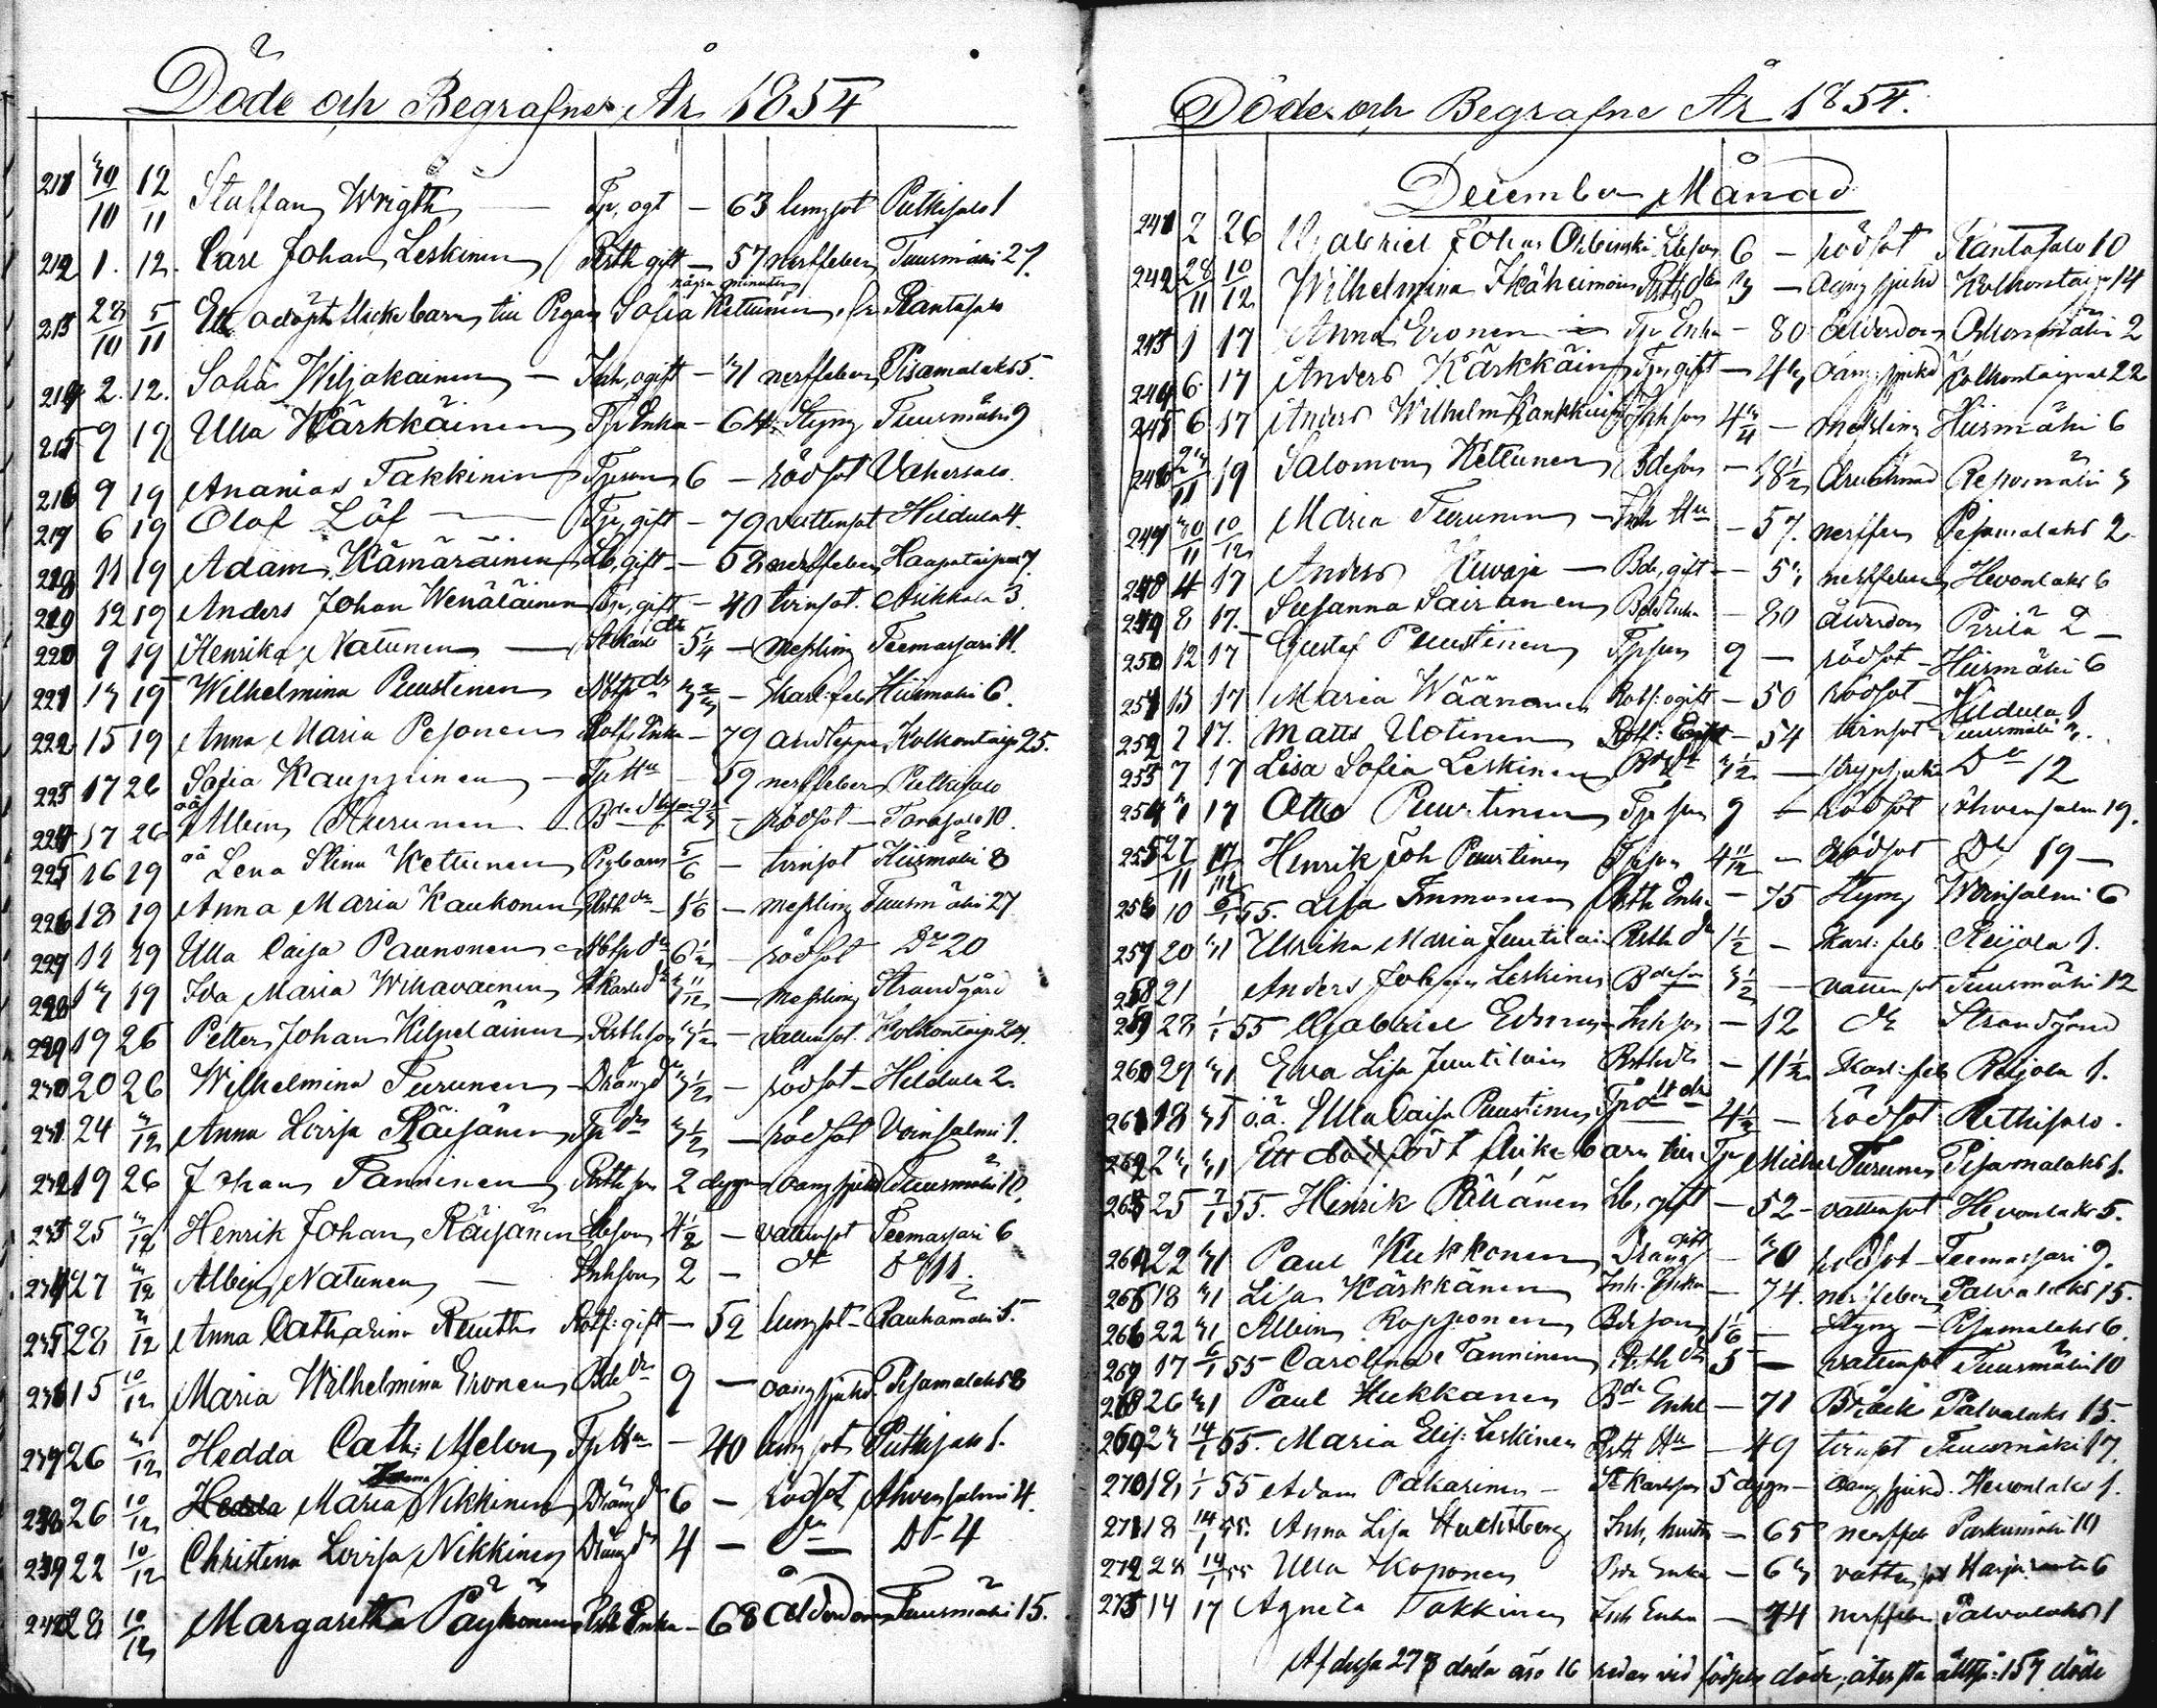 Döde och Begrafne År 1854
211 30/10 12/11 Staffan Wrigth — Tp, ogt — 63 lungsot Putkisalo 1
212 1. 12. Carl Johan Leskinen Rsth gift — 57 nerffeber Tuusmäki 27.
några minuter
213 28/10 5/11 Ett odöpt flickebarn till Pigan Sofia Kettunen, fr. Rantasalo
214 2. 12. Sofia Wiljakainen — Inh, ogift — 31 nerffeber Pisamalaks 5.
215 9 19 Ulla Kärkkäinen Tp Enka — 64. Styng Tuusmäki 9
216 9 19 Ananias Takkinen Tpson 6 — rödsot Vahersalo.
217 6 19 Olof Löf — Tp, gift — 79 vattensot Hildula 4.
218 11 19 Adam Kämäräinen Lb, gift — 58 nerffeber Haapataipal 7.
219 12 19 Anders Johan Wenäläinen Tp, gift — 40 tvinsot. Asikkala 3.
220 9 19 Henrika Natunen — St Karls dr 5 1/4 — meßling Teemassari 11.
221 13 19 Wilhelmina Puustinen dr — Skarl: feb Hiismäki 6.
222 15 19 Anna Maria Pesonen Rotf. Enka — 79 andteppa Kolkontaip 25.
223 17 26 Sofia Kauppinen — Tp Hu — 59 nerffeber Putkisalo
224 17 26 oä Albin Kurunen — rödsot — Tanasalo 10.
225 16 19 oä Lena Stina Kettunen Pigbarn 5/6 — tvinsot Hiismäki 8
226 18 19 Anna Maria Kaukonen Rsth dr — 1 1/6 — meßling Tuusmäki 27
227 11 19 Ulla Caisa Paunonen 6 1/2 — rödsot Do 20
228 13 19 Ida Maria Wihavainen St Karls dr 11/12 — meßling Strandgård
229 19 26 Petter Johan Kilpeläinen Rsth son 3 1/2 — vattensot. Kolkontaip 24.
230 20 26 Wilhelmina Turunen — Dräng dr 3 1/2 — rödsot — Hildula 2.
231 24 3/12 Anna Lovisa Räisänen Tp dr 3 1/2 — rödsot Voinsalmi 1.
232 19 26 Johan Tanninen Rsth son 2 dygn oäng sjukd Tuusmäki 10.
233 25 3/12 Henrik Johan Räisänen Lbson 4 1/2 — vattensot Teemassari 6
234 27 3/12 Albin Natunen — Inhson 2 — do Do 11.
235 28 3/12 Anna Catharina Reuth Rotf: gift — 52 lungsot — Rauhamäki 5.
236 15 10/12 Maria Wilhelmina Eronen Bde dr 9 — oäng sjukd. Pisamalaks 8
237 26 3/12 Hedda Cath: Melon Tp Hu — 40 lungsot Putkisalo 1.
238 26 10/12 Hedda Maria Johanna Nikkinen Dräng dr 6 — rödsot Ahvensalmi 4.
239 22 10/12 Christina Lovisa Nikkinen Dräng dr 4 — do Do 4
240 28 10/12 Margaretha Päykönen Rsth Enka — 68 Ålderdom Tuusmäki 15.
Döde och Begrafne År 1854.
December Månad
241 2 26 Gabriel Johan Lbson 6 — rödsot Rantasalo 10
242 28/11 10/12 Wilhelmina Ikäheimonen Rsth dr 3 — oäng sjukd Kolkontaip 14
243 1 17 Anna Eronen — Tp Enka — 80 ålderdom Oskonmäki 2
244 6 17 Anders Kärkkäinen Tp, gift — 43 oäng: sjukd Kolkontaipal 22
245 6 17 Anders Wilhelm Kankkuinen Inhson 4 3/4 — meßling Hiismäki 6
246 23/11 19 Salomon Kettunen Bdeson — 18 1/2 drunknad Repomäki 3
247 30/11 10/12 Maria Turunen — Inh Hu — 57. nerffeb Pisamalaks 2
248 4 17 Anders Kuvaja — Bde, gift — 53 nerffeber Hevonlaks 6
249 8 17. Susanna Sairanen Bde Enka — 80 ålderdom Pirilä 2 —
250 12 17 Gustaf Puustinen Tpson 9 — rödsot — Hiismäki 6
251 13 17 Maria Wäänänen Rotf: ogift — 50 rödsot — Hildula 1
252 7 17. Matts Uotinen Rotf: Gift — 54 tvinsot — Tuusmäki
253 7 17 Lisa Sofia Leskinen Bde dr 3 1/2 — strypsjuka Do 12
254 3 17 Otto Puustinen Tpson 9 — rödsot Ahvensalmi 19.
255 27/11 17/12 Henrik Joh Puustinen Tpson 4 11/12 — rödsot Do 19 —
256 10 6/1 55. Lisa Immonen Rsth Enka — 75 Styng Woinsalmi 6
257 20 31 Ulrika Maria Juutilain Rsth dr 1 1/2 — Skarl: feb. Reijola 1.
258 21 Anders Johan Leskinen Bdeson 3 1/2 — vattensot Tuusmäki 12
259 28 1/1 55 Gabriel Inhson — 12 do Strandgård
260 29 31 Eva Lisa Juutilain Rsth dr — 11 1/2 Skarl: feb Reijola 1.
261 18 31 oä. Ulla Caisa Puustinen 4 1/2 — rödsot. Putkisalo.
262 23 31 Ett dödfödt flickebarn till Tp Michel Turunen Pisamalaks 1.
263 25 7/1 55. Henrik Pöllänen Lb, gift — 52 — vattensot Hevonlaks 5.
264 22 31 Paul Kukkonen Dräng gift — 30 rödsot — Teemassari 9.
265 18 31 Lisa Kärkkänen Inh. Enka — 74. nerffeber Palvalaks 15.
266 22 31 Albin Ropponen Bdeson 1 1/6 — Styng — Pisamalaks 6.
267 17 6/1 55 Carolina Tanninen Rsth dr 5 — vattensot Tuusmäki 10
268 26 31 Paul Hukkanen Bde Enkl — 71 Bråck Palvalaks 15.
269 23 14/1 55. Maria Elis: Leskinen Rsth Hu — 49 tvinsot Tuusmäki 17.
270 18 1/1 55 Adam Pakarinen — St Karlson 5 dygn — oäng sjukd. Hevonlaks 1.
271 18 14/1 55. Anna Lisa Inh, hustru — 65 nerffeb Parkumäki 10
272 28 14/1 55 Ulla Koponen Bde Enka — 63 vattensot Harjuranta 6
273 14 17 Agneta Takkinen Inh Enka — 74 nerffeber Palvalaks 1
Af dessa 273 döda äro 16 redan vid födseln döde, återstå alltså: 257 döde